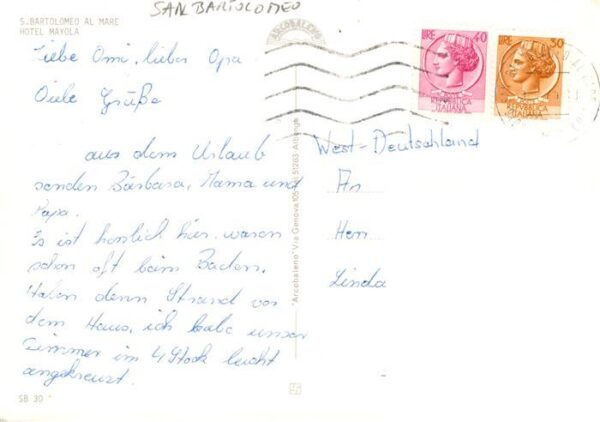 S. BARTOLOMEO AL MARE
HOTEL MAYOLA
SAN BARTOLOMEO
ARCOBALENO
LIRE 40
REPVBBLICA
ITALIANA
LIRE 30
REPVBBLICA
ITALIANA
Liebe Omi, lieber Opa.
Viele Grüße
aus dem Urlaub
senden Barbara, Mama und
Papa.
Es ist herrlich hier, waren
schon oft beim Baden.
Haben denn Strand vor
dem Haus, ich habe unser
Zimmer im 4 Stock leicht
angekreuzt.
"Arcobaleno" Via Genova 106 51263 Albenga
West-Deutschland
An
Herr
Linda
SB 30